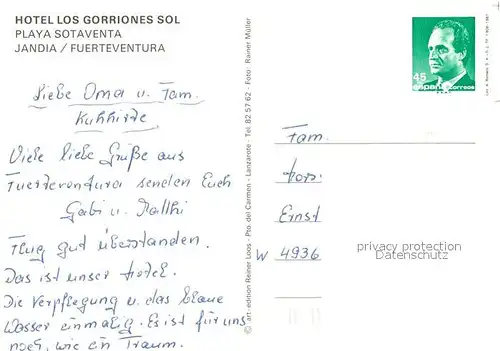 HOTEL LOS GORRIONES SOL
PLAYA SOTAVENTA
JANDIA / FUERTEVENTURA
Liebe Oma u. Fam.
Viele liebe Grüße aus
Fuerteventura senden Euch
Gabi u.
Flug gut überstanden.
Das ist unser Hotel.
Die Verpflegung u. das blaue
Wasser einmalig. Es ist für uns
noch, wie ein Traum.
© art-edition Reiner Loos - Pto. del Carmen - Lanzarote - Tel. 82 57 62 - Foto: Rainer Müller
45
españa correos
Fam.
Ernst
W 4936
privacy protection
Datenschutz